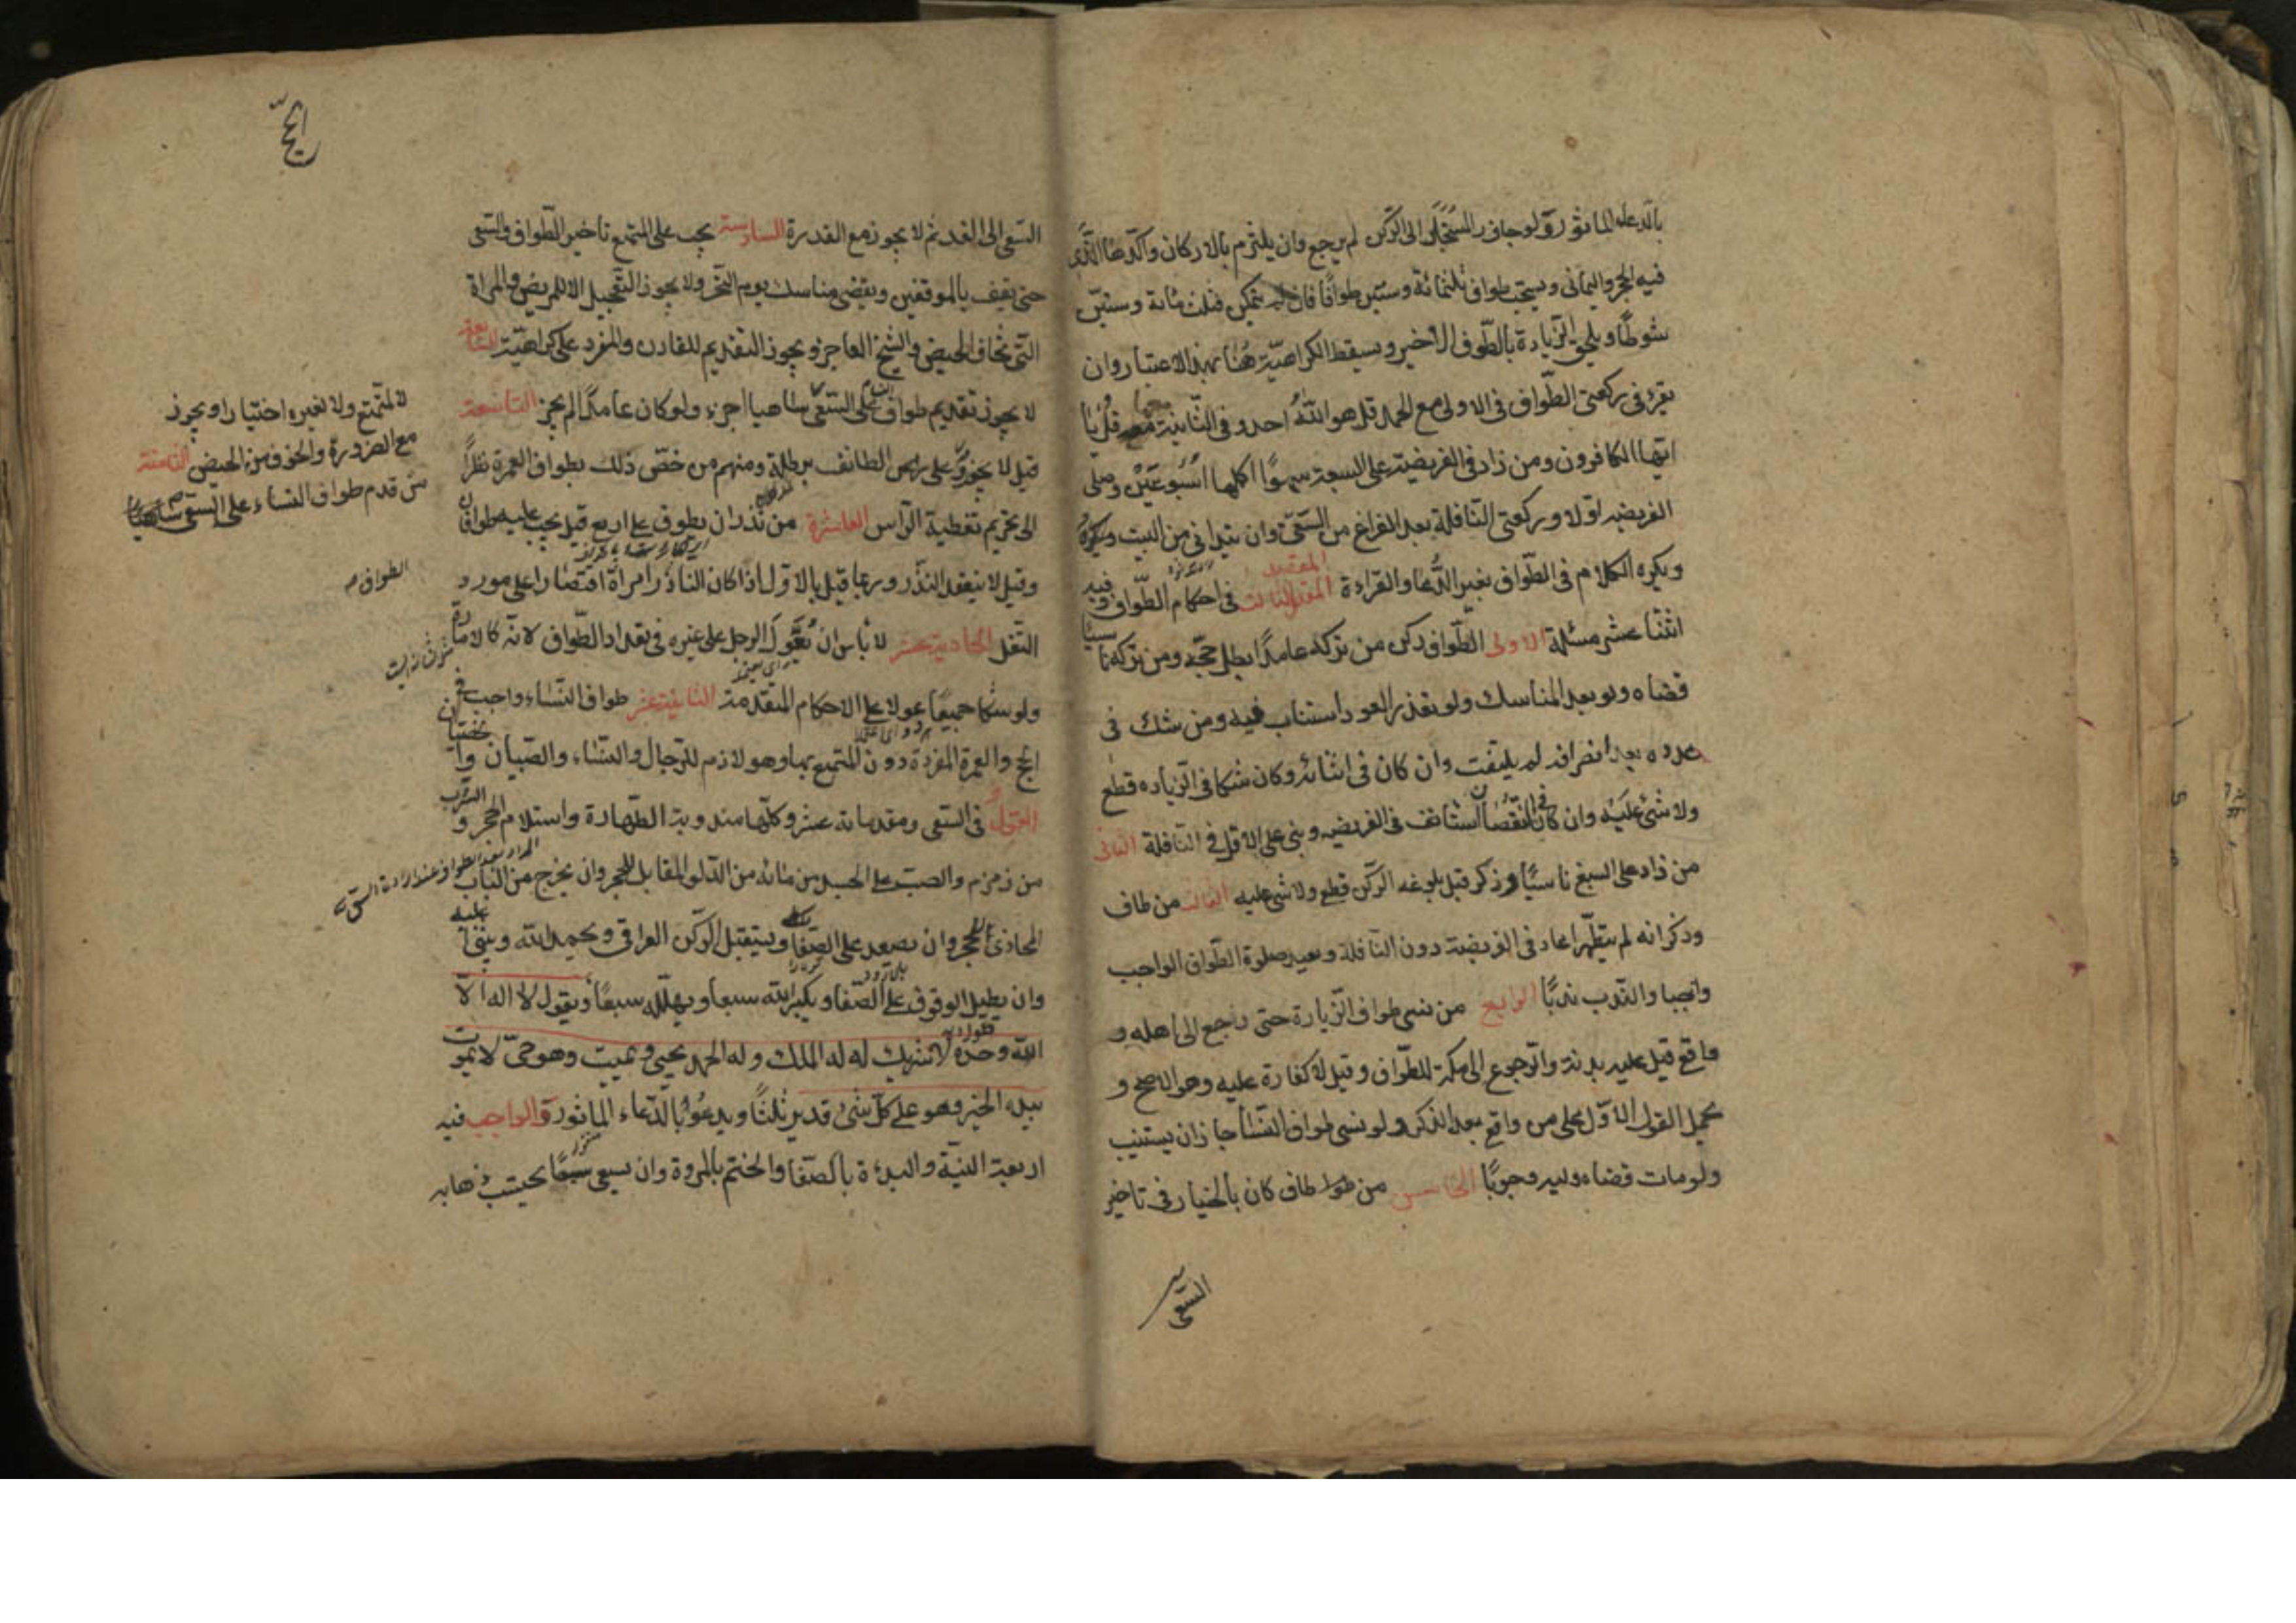 بالدعاء الماثور ولو جاوز المستجار الى الركن لم يرجع وان يلتزم بالاركان وآكدها الذى
فيه الحجر واليمانى ويستحب طواف ثلثمائة وستين طوافا فان لم يتمكن فثلث مائة وستين
شوطا ويلحق الزيادة بالطواف الاخير ويسقط الكراهية هنا بهذا الاعتبار وان
يقرء فى ركعتى الطواف فى الاولى مع الحمد قل هو الله احد وفى الثانية معها قل يا
ايها الكافرون ومن زاد فى الفريضة على السبعة سهوا اكملها اسبوعين وصلى
الفريضة اولا وركعتى النافلة بعد الفراغ من السعى وان يتدانى من البيت ويكره
ويكره الكلام فى الطواف بغير الدعا والقراءة المقصد الثالث فى احكام الطواف وفيه
اثنتا عشر مسئلة الاولى الطواف ركن من تركه عامدا بطل حجه ومن تركه ناسيا
قضاه ولو بعد المناسك ولو تعذر العود استناب فيه ومن شك فى
عدده بعد انصرافه لم يلتفت وان كان فى اثنائه وكان شكا فى الزياده قطع
ولا شئ عليه وان كان فى النقصان استانف فى الفريضه وبنى على الاقل فى النافلة الثانى
من زاد على السبع ناسيا وذكر قبل بلوغه الركن قطع ولا شى عليه الثالث من طاف
وذكر انه لم يتطهر اعاد فى الفريضة دون النافلة ويعيد صلوة الطواف الواجب
واجبا والندب ندبا الرابع من نسى طواف الزيارة حتى رجع الى اهله و
واقع قيل عليه بدنة والرجوع الى مكة للطواف وقيل لا كفارة عليه وهو الاصح و
يحمل القول الاول على من واقع بعد الذكر ولو نسى طواف النسا جاز ان يستنيب
ولو مات قضاه وليه وجوبا الخامس من طاف كان بالخيار فى تاخير
السعى
الحج
السعى الى الغد ثم لا يجوز مع القدرة السادسة يجب على المتمتع تاخير الطواف والسعى
حتى يقف بالموقفين ويقضى مناسك يوم النحر ولا يجوز التعجيل الا للمريض والمراة
التى تخاف الحيض والشيخ العاجز ويجوز التقديم للقارن والمفرد على كراهية السابعة
لا يجوز تقديم طواف النساء على السعى ساهيا اجزء ولو كان عامدا لم يجز التاسعة
لا لمتمتع ولا لغيره اختيارا ويجوز
مع الضرورة والخوف من الحيض الثامنة
من قدم طواف النساء على السعى ساهيا
قيل لا يجوز على رجل الطائف برطلة ومنهم من خص ذلك بطواف العمرة نظرا
الى تحريم تغطية الراس العاشرة من نذر ان يطوف على اربع قيل يجب عليه طوافان
وقيل لا ينعقد النذر وربما قيل بالاول اذا كان الناذر امراة اقتصارا على مورد
الطواف
النقل الحادية عشر لا باس ان يعول الرجل على غيره فى تعداد الطواف لانه كالامارة
ولو شكا جميعا عولا على الاحكام المتقدمة الثانية عشر طواف النساء واجب فى
الحج والعمرة المفردة دون المتمتع بها وهو لازم للرجال والنساء والصبيان والخنثيان
القول فى السعى ومقدماته عشر وكلها مندوبة الطهارة واستلام الحجر والشرب
من زمزم والصب على الجسد من مائه من الدلو المقابل للحجر وان يخرج من الباب
المحاذى للحجر وان يصعد على الصفا ويستقبل الركن العراقى ويحمد الله ويثنى عليه
وان يطيل الوقوف على الصفا ويكبر الله سبعا ويهلله سبعا ويقول لا اله الا
الله وحده لا شريك له له الملك وله الحمد يحيى ويميت وهو حى لا يموت
بيده الخير وهو على كل شئ قدير ثلثا ويدعو بالدعاء الماثورة والواجب فيه
اربعة النية والبدءة بالصفا والختم بالمروة وان يسعى سبعا يحتسب ذهابه